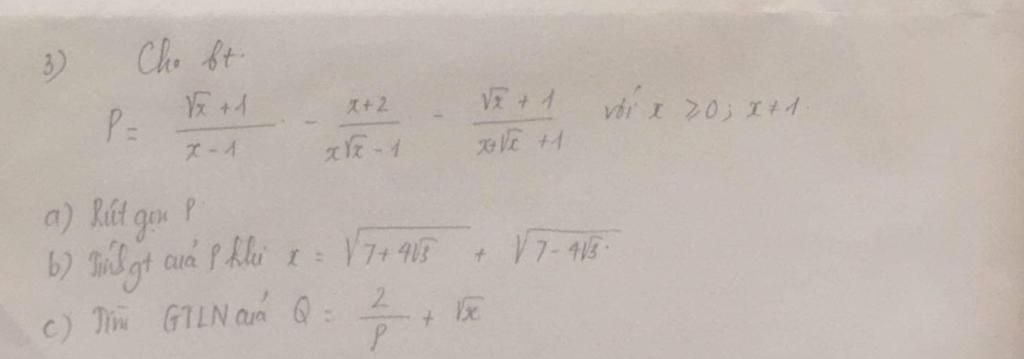 3) Cho bt.
P = (√x + 1)/(x - 1) - (x + 2)/(x√x - 1) - (√x + 1)/(x + √x + 1) với x ≥ 0; x ≠ 1.
a) Rút gọn P
b) Tính gt của P khi x = √(7 + 4√3) + √(7 - 4√3).
c) Tìm GTLN của Q = 2/P + √x